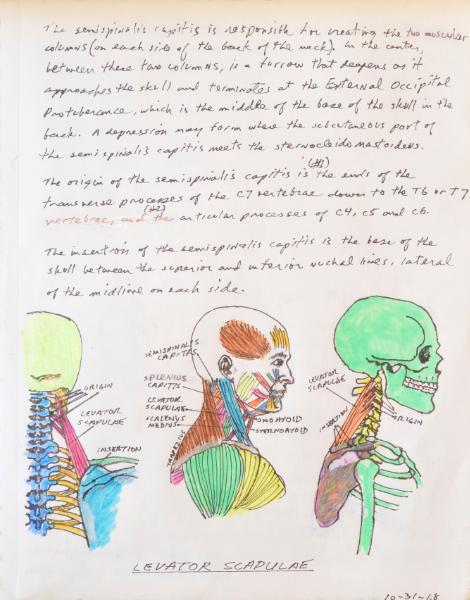 The semispinalis capitis is responsible for creating the two muscular
columns (on each side of the back of the neck). In the center,
between these two columns, is a furrow that deepens as it
approaches the skull and terminates at the External Occipital
Protuberance, which is the middle of the base of the skull in the
back. A depression may form where the subcutaneous part of
the semispinalis capitis meets the sternocleidomastoideus.
(#1)
The origin of the semispinalis capitis is the ends of the
transverse processes of the C7 vertebrae down to the T6 or T7
(#2)
vertebrae, and the articular processes of C4, C5 and C6.
The insertion of the semispinalis capitis is the base of the
skull between the superior and inferior nuchal lines, lateral
of the midline on each side.
ORIGIN
LEVATOR
SCAPULAE
INSERTION
SEMISPINALIS
CAPITIS
SPLENIUS
CAPITIS
LEVATOR
SCAPULAE
SCALENUS
MEDIUS
OMOHYOID
STERNOHYOID
LEVATOR
SCAPULAE
INSERTION
ORIGIN
LEVATOR SCAPULAE
10-31-18